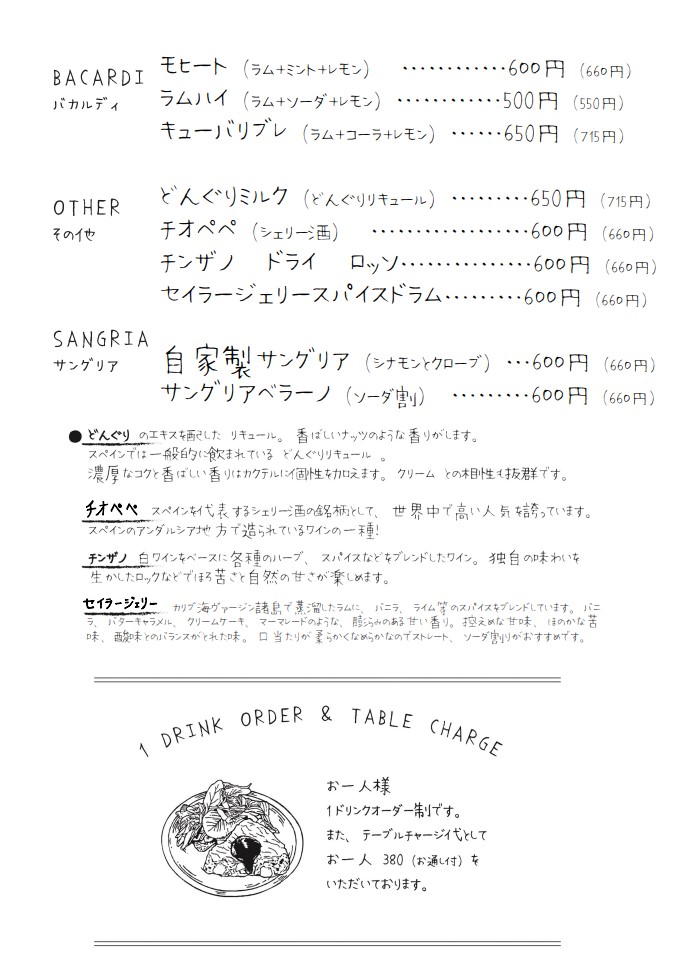 BACARDI
バカルディ
モヒート (ラム+ミント+レモン) ············600円 (660円)
ラムハイ (ラム+ソーダ+レモン) ············500円 (550円)
キューバリブレ (ラム+コーラ+レモン) ······650円 (715円)
OTHER
その他
どんぐりミルク (どんぐりリキュール) ·········650円 (715円)
チオペペ (シェリー酒) ················600円 (660円)
チンザノ ドライ ロッソ···············600円 (660円)
セイラージェリースパイスドラム·········600円 (660円)
SANGRIA
サングリア
自家製サングリア (シナモンとクローブ) ···600円 (660円)
サングリアベラーノ (ソーダ割) ·········600円 (660円)
●どんぐり のエキスを配した リキュール。 香ばしいナッツのような香りがします。
スペインでは一般的に飲まれている どんぐりリキュール 。
濃厚なコクと香ばしい香りはカクテルに個性を加えます。 クリーム との相性も抜群です。
チオペペ スペインを代表するシェリー酒の銘柄として、 世界中で高い人気を誇っています。
スペインのアンダルシア地方で造られているワインの一種!
チンザノ 白ワインをベースに各種のハーブ、 スパイスなどをブレンドしたワイン。 独自の味わいを
生かしたロックなどでほろ苦さと自然の甘さが楽しめます。
セイラージェリー カリブ海ヴァージン諸島で蒸溜したラムに、 バニラ、 ライム等のスパイスをブレンドしています。 バニ
ラ、 バターキャラメル、 クリームケーキ、 マーマレードのような、 膨らみのある甘い香り。 控えめな甘味、 ほのかな苦
味、 酸味とのバランスがとれた味。 口当たりが柔らかくなめらかなのでストレート、 ソーダ割りがおすすめです。
1 DRINK ORDER & TABLE CHARGE
お一人様
1ドリンクオーダー制です。
また、 テーブルチャージ代として
お一人 380 (お通し付) を
いただいております。